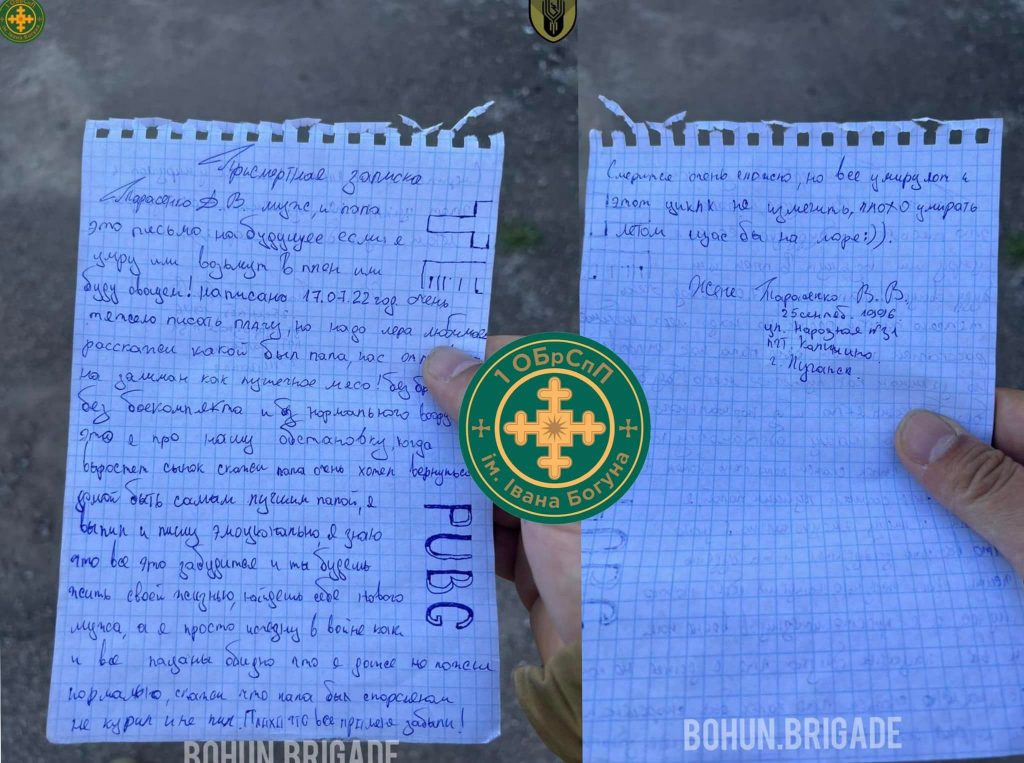 Присмортная записка
Тарасенко Д.В. муж, и папа
это письмо на будующее если я
умру или возьмут в плен или
буду овощем! написано 17.07.22 год очень
тяжело писать плачу, но надо лера любимая
расскажи какой был папа, нас
на заиман как пушечное мясо! без
без боекомплекта и без нормального
это я про нашу обстановку, когда
выростел сынок скажи папа очень хотел вернуться
домой быть самым лучшим папой, я
выпил и пишу эмоционально, я знаю
что все это забудится и ты будешь
жить своей жизнью, найдешь себе нового
мужа, а я просто исчезну в войне как
и все пацаны обидно что я даже не пожил
нормально, скажи что папа был спорсменом
не курил и не пил. Плохо что все про меня забыли!
PUBG
Смерится очень сложно, но все умирулоп и
этот цикл не изменить, плохо умирать
летом щас бы на море:)).
Жене Тарасенко В. В.
25 сентяб. 1996
ул. Народная №31
пгт. Калинино
г. Луганск
1 ОБрСпП
ім. Івана Богуна
BOHUN.BRIGADE
BOHUN.BRIGADE